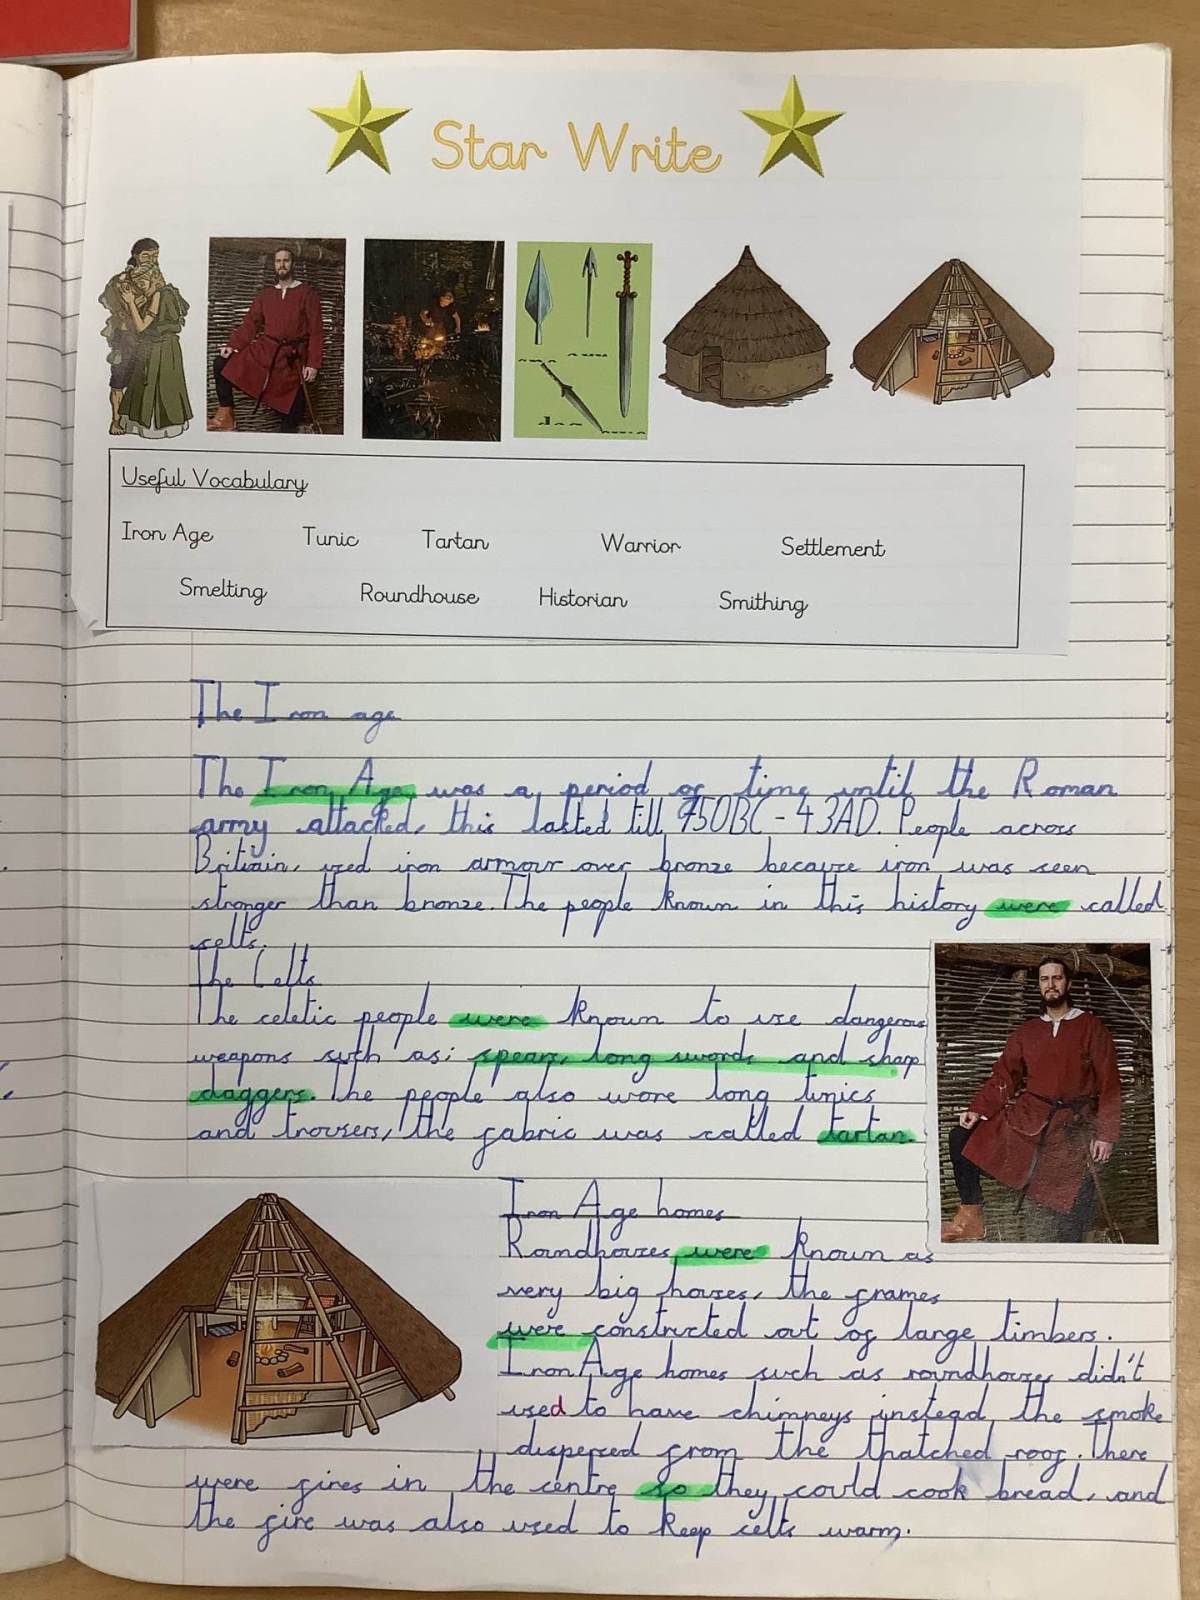 Star Write
Useful Vocabulary
Iron Age Tunic Tartan Warrior Settlement
Smelting Roundhouse Historian Smithing
The Iron age
The Iron Age, was a period of time until the Roman
army attacked, this lasted till 750BC - 43AD. People across
Britiain, used iron armour over bronze because iron was seen
stronger than bronze. The people known in this history were called
celts.
The Celts
The celetic people were known to use dangerous
weapons such as; spears, long swords and sharp
daggers. The people also wore long tunics
and trousers, the fabric was called tartan.
Iron Age homes
Roundhouses were known as
very big houses, the frames
were constructed out of large timbers.
Iron Age homes such as roundhouses didn't
used to have chimneys instead, the smoke
dispersed from the thatched roof. There
were fires in the centre so they could cook bread, and
the fire was also used to keep celts warm.